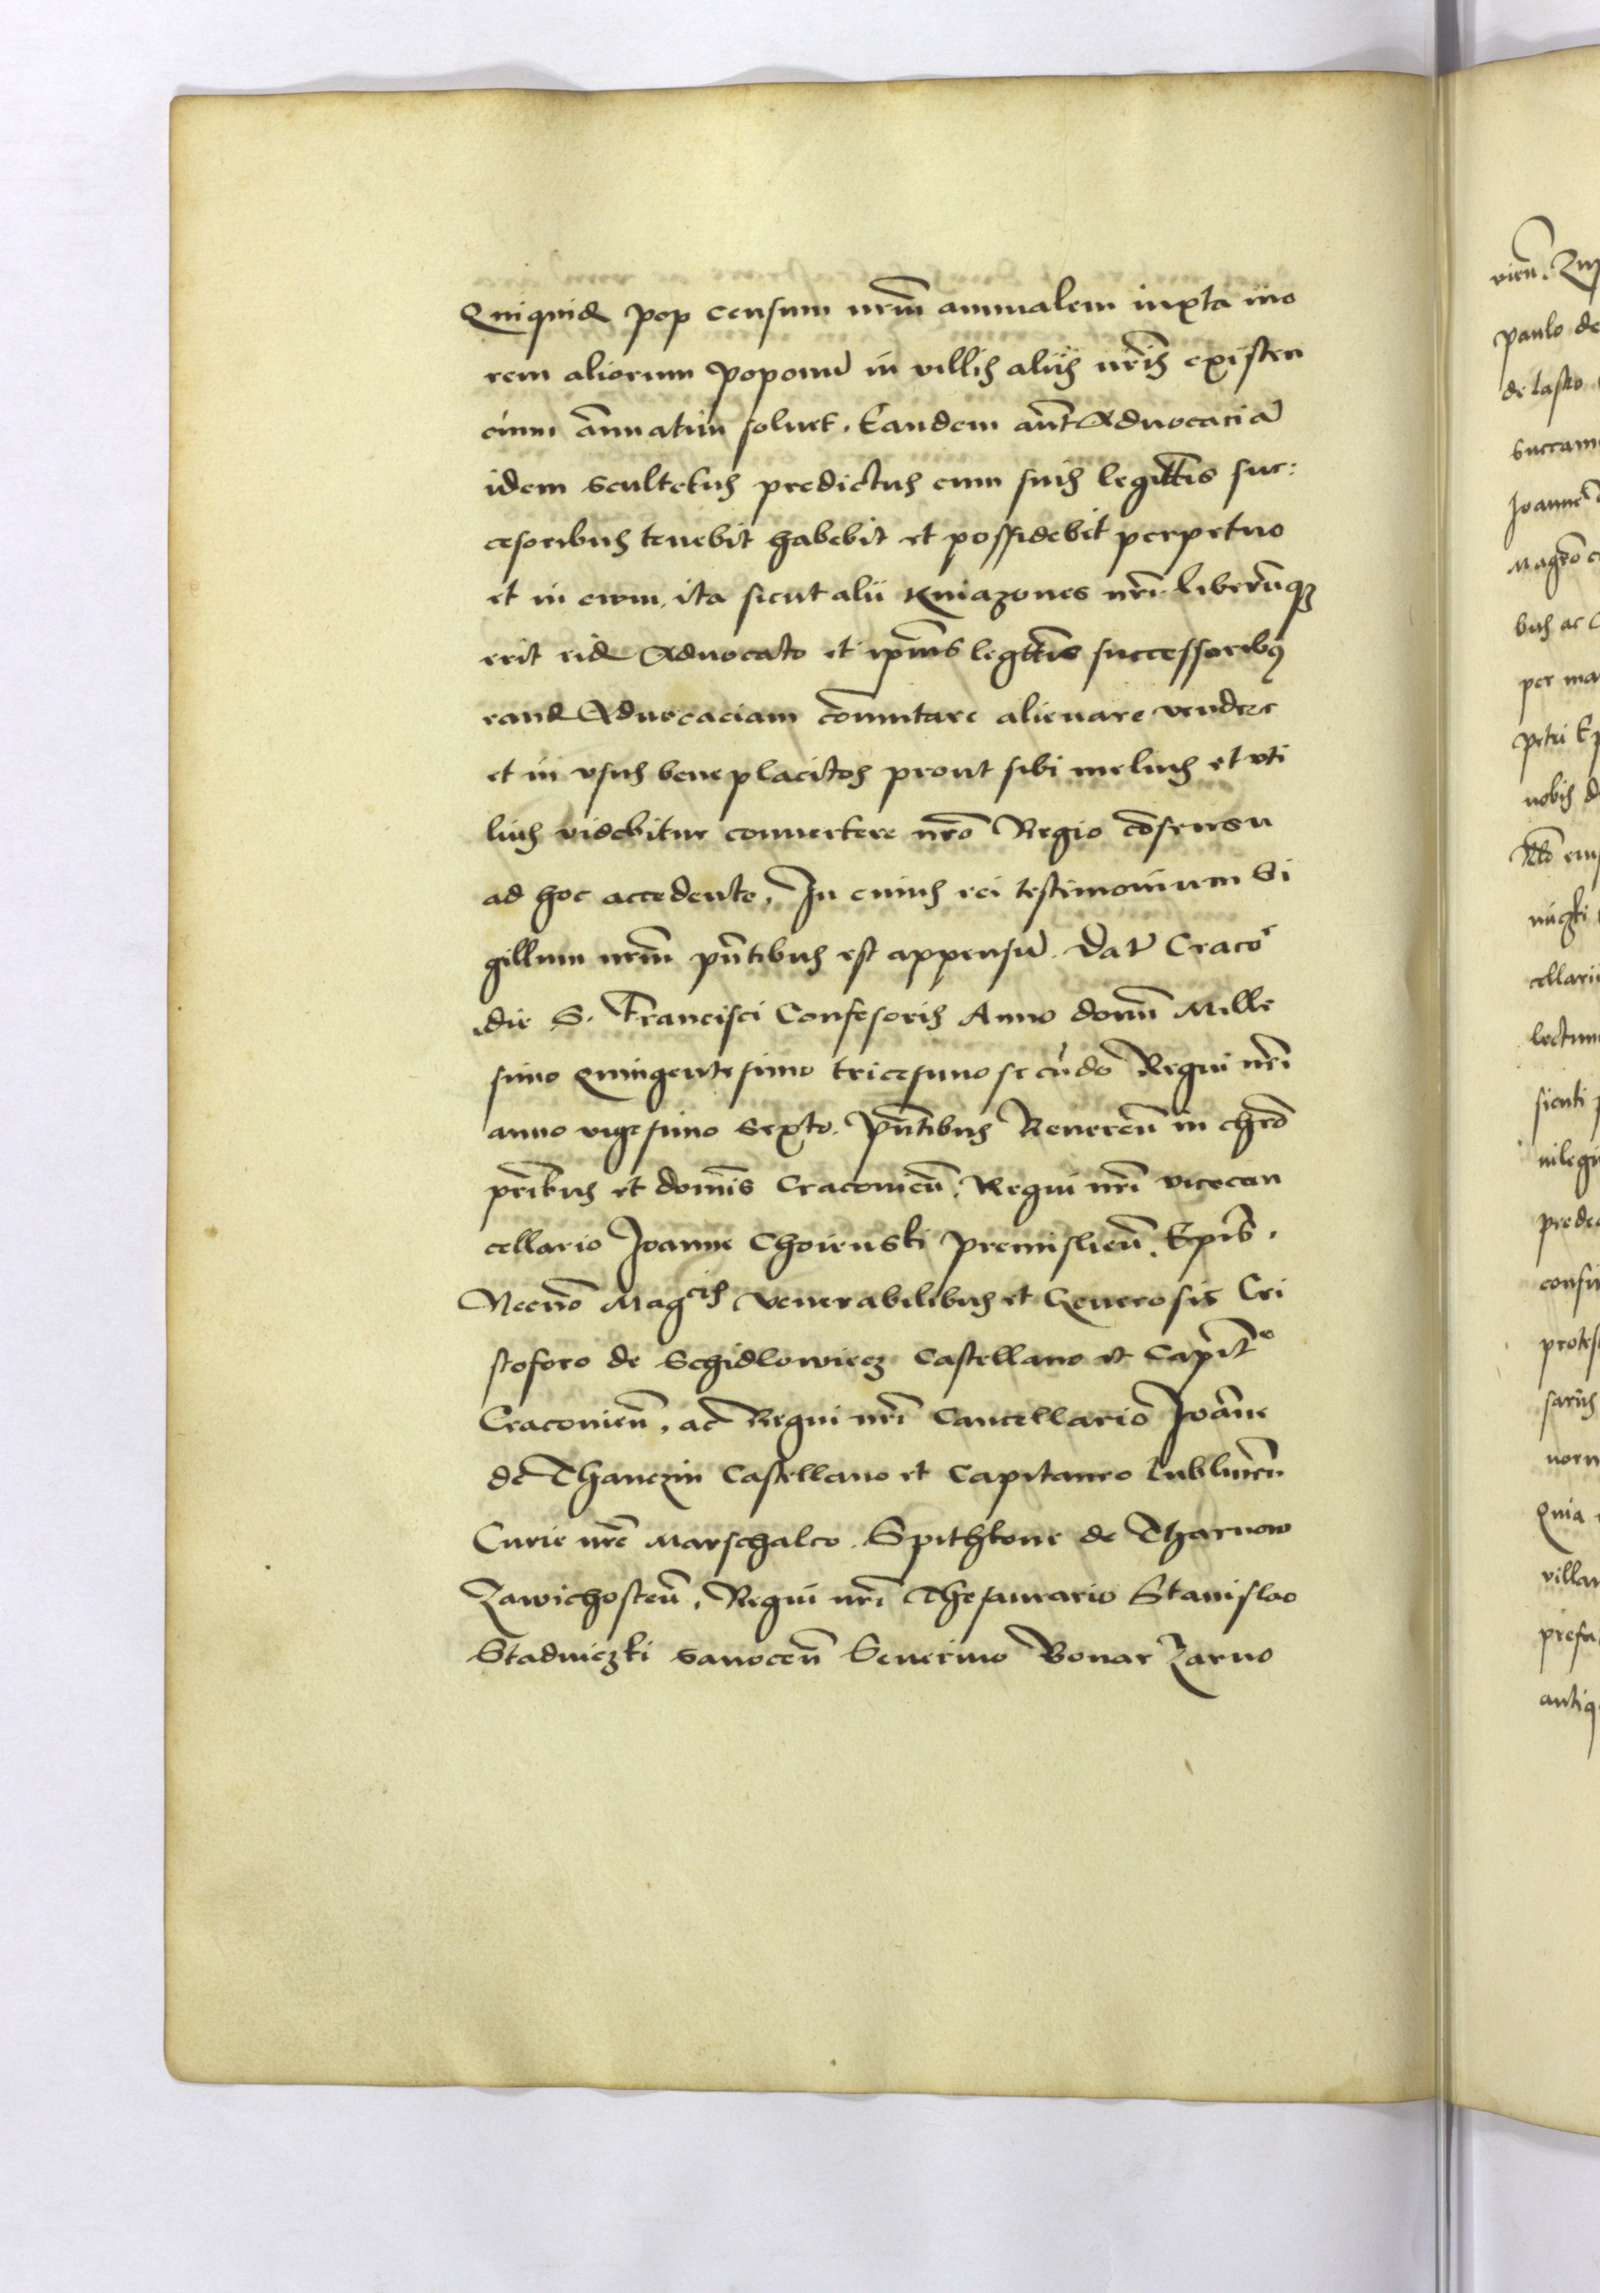 Quiquid pop censum nrm̄ annualem iuxta mo
rem aliorum poponū in villis aliis nrīs existen
cium ānuatim soluet. Eandem aūt Aduocaciā
idem scultetus predictus cum suis legittīs suc:
cesoribus tenebit habebit et possidebit perpetuo
et in ewm. ita sicut alii Kniazones nrī. Liberūq3
erit eid Aduocato et ip̄ius legttīs successoribus
eand Aduocaciam com̄utare alienare vendere
et in vsus bene placitos prout sibi melius et vti
lius videbitur conuertere nrō Regio cōsensu
ad hoc accedente. In cuius rei testimonium Si
gillum nrm̄ pn̄tibus est appensū. Datū Craco
die S. Francisci Confesoris Anno domī Mille
simo Quingentesimo tricesimo secūdo Regni nrī
anno vigesimo Sexto. Pn̄tibus Reuerēn in chrō
pr̄ibus et domīs Cracouień. Regni nrī vicecan
cellario Joanne Choienski Premislień. Epīs.
Necnō Magcis Venerabilibus et Generosis Cri
stoforo de Schidlowiecz Castellano et Capitō
Cracouień. ac Regni nrī Cancellario Joāne
de Thanczin Castellano et Capitaneo Lublineń
Curie nrē Marschalco. Spithkone de Tharnow
Zawichosteń. Regni nrī Thesaurario Stanislao
Stadniczki Sanoceń Seuerino Bonar Zarno
vień.
paulo de
de lasko
Succam
Joanne
Magrō
bus ac
per ma
petri
nobis
cellarii
lectum
sicuti
uilegi
prede
confi
protes
sariis
Quia
villa
prefa
antiq